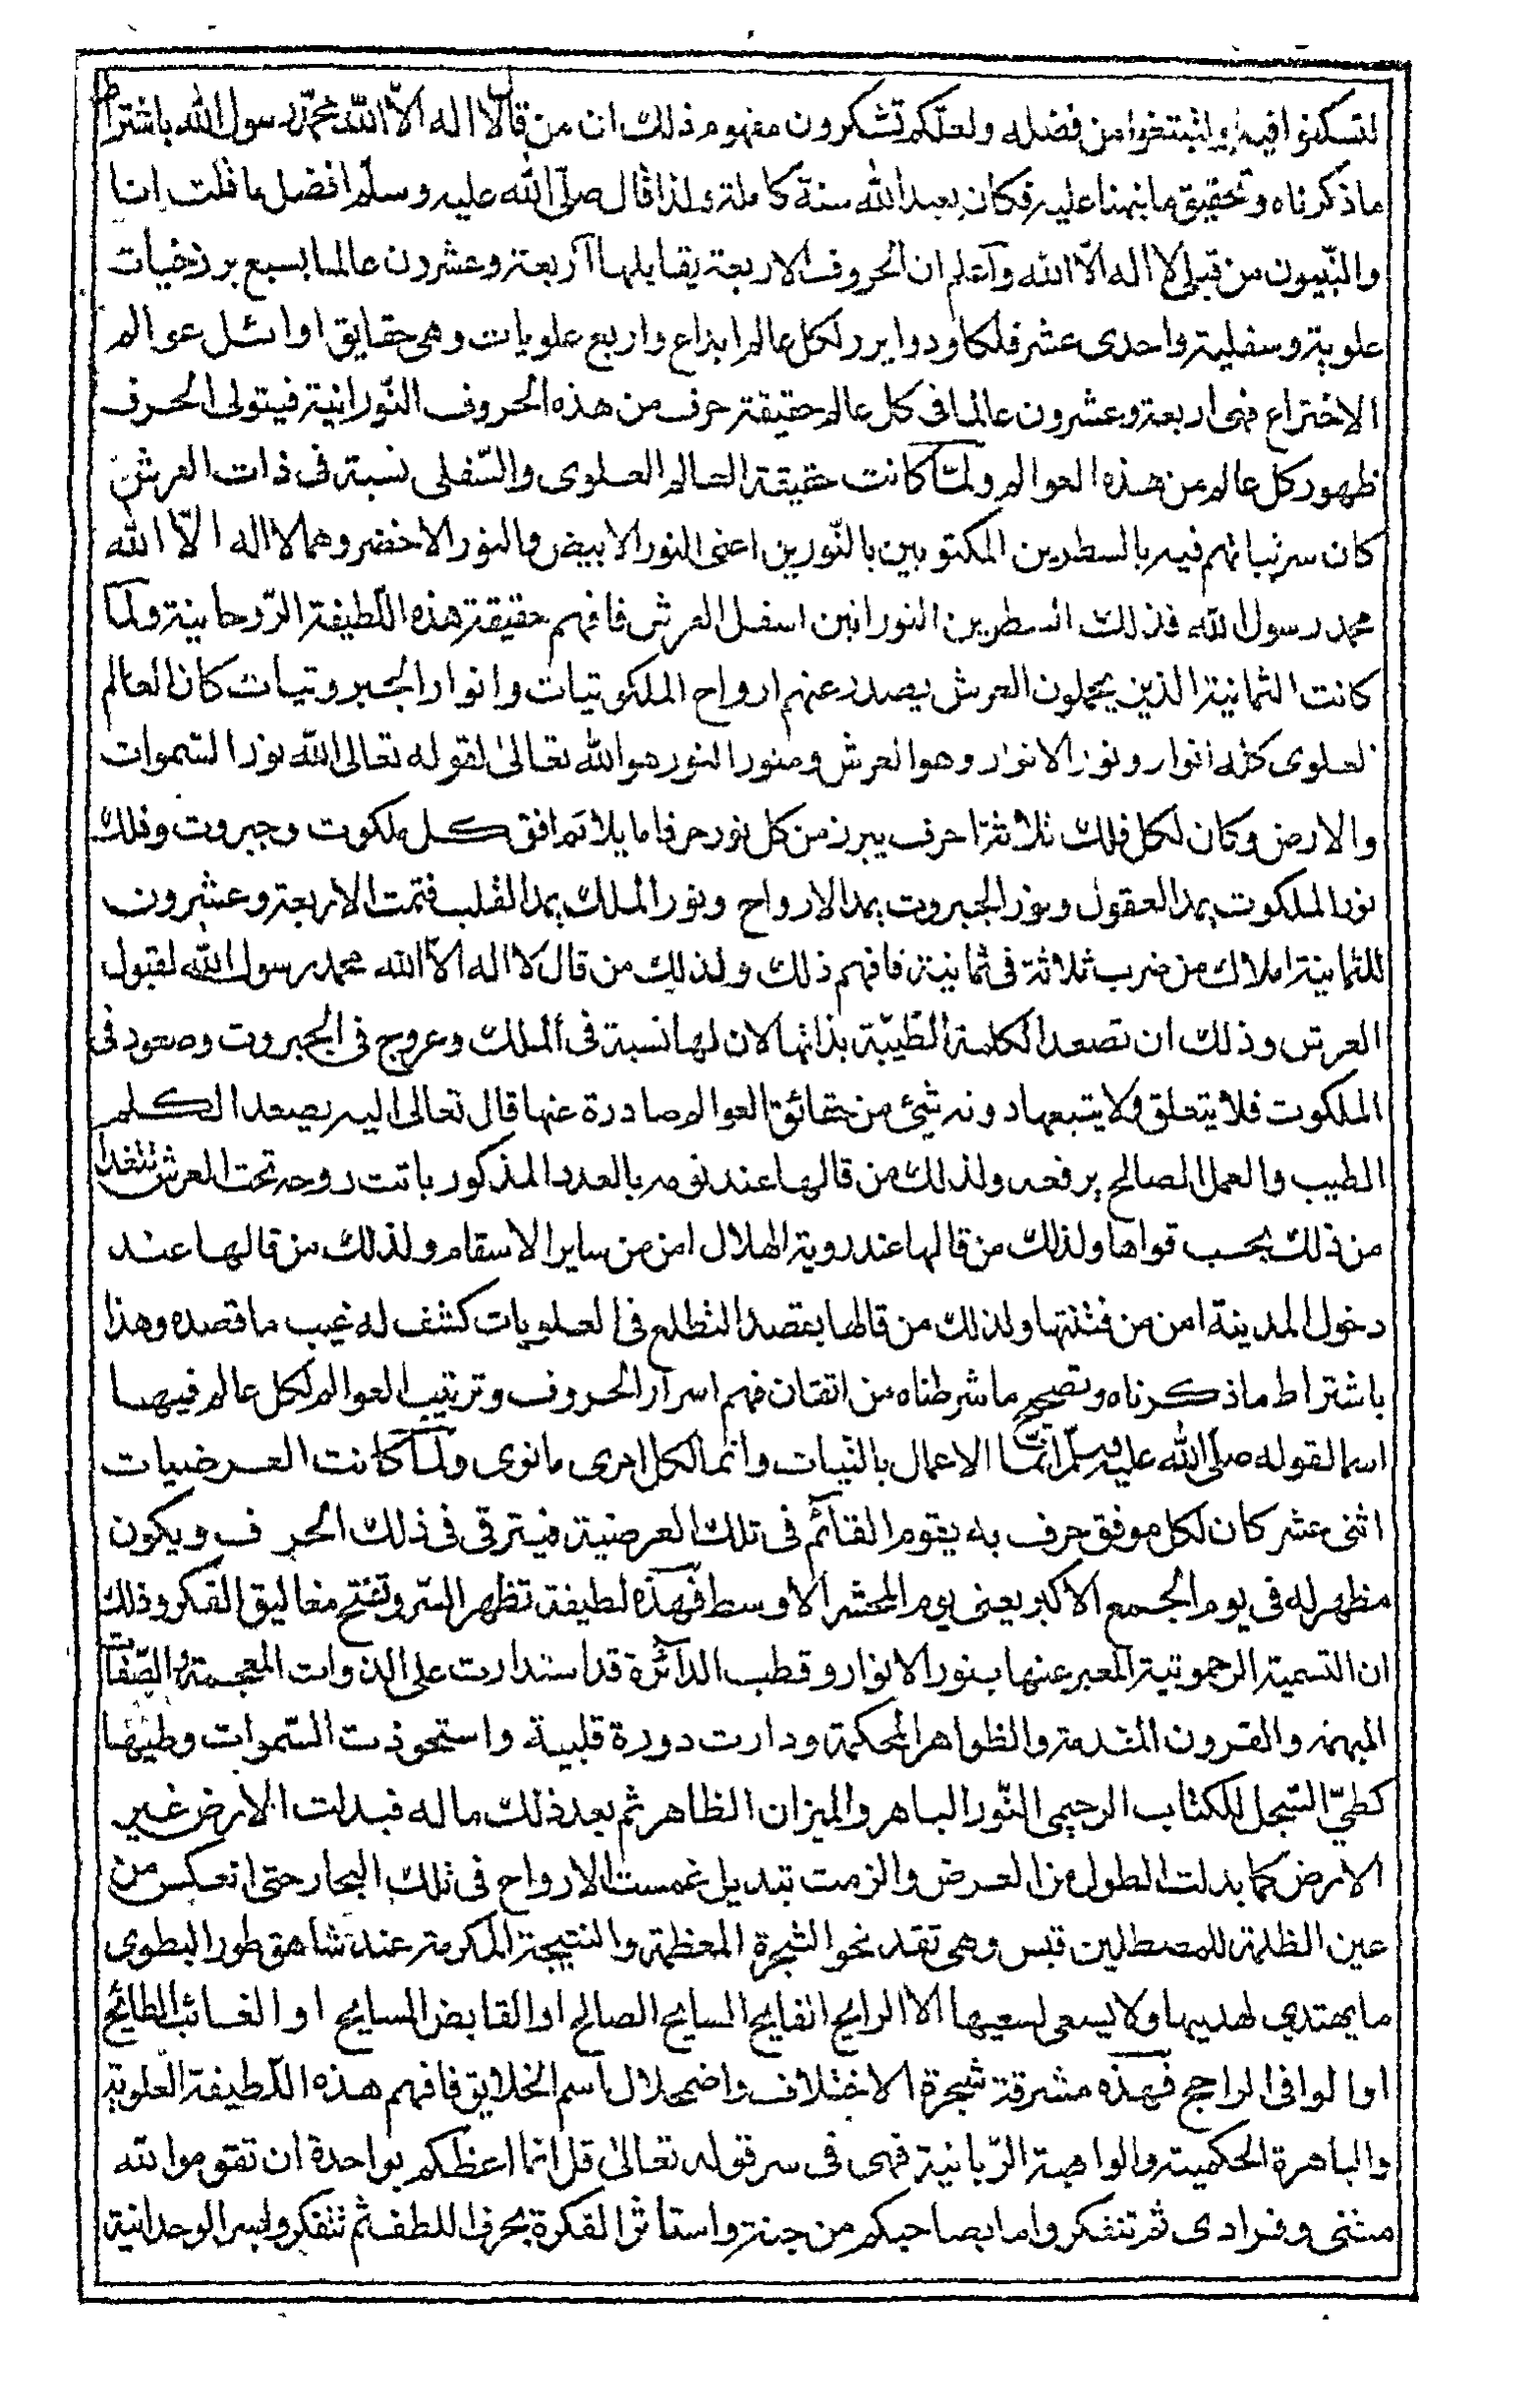 لتسكنوا فيه ولتبتغوا من فضله ولعلكم تشكرون مفهوم ذلك ان من قال لا اله الّا اللّه محمّد رسول الله باشتراط
ماذكرناه وتحقيق ما نبهنا عليه فكان بعبد الله سنة كاملة ولذا قال صلّى الله عليه وسلّم افضل ما قلت انا
والنّبيون من قبلى لا اله الّا الله وآعلم ان الحروف الاربعة يقابلها آربعة وعشرون عالما بسبع برزخيات
علوية وسفلية واحدى عشر فلكا ودوابر رلكل عالم ابداع واربع علويات وهى حقايق اوائل عوالم
الاختراع فهى اربعة وعشرون عالما فى كل عالم حقيقة حرف من هذه الحروف النّورانية فيتولى الحرف
ظهور كل عالم من هذه العوالم ولمّا كانت حقيقة العالم العلوى والسّفلى نسبة فى ذات العرش
كان سر ثباتهم فيه بالسطرين المكتوبين بالنّورين اعنى النور الابيض والنور الاخضر وهما لا اله الّا الله
محمد رسول الله فذلك السطرين النورانين اسفل العرش فافهم حقيقة هذه اللّطيفة الرّوحانية ولما
كانت الثمانية الذين يحملون العرش يصدر عنهم ارواح الملكوتيات وانوار الجبروتيات كان العالم
العلوى كله انوار ونور الانوار وهو العرش ومنور النور هو الله تعالى لقوله تعالى الله نور السّموات
والارض وكان لكل فلك ثلاثة احرف يبرز من كل نور حرفا ما يلائم افق كل ملكوت وجبروت وفلك
نور الملكوت يمد العقول ونور الجبروت يمد الارواح ونور الملك يمد القلب فتمت الاربعة وعشرون
للثمانية املاك من ضرب ثلاثة فى ثمانية فافهم ذلك ولذلك من قال لا اله الّا الله محمد رسول الله لقبول
العرش وذلك ان تصعد الكلمة الطّيبّة بذاتها لان لها نسبة فى الملك وعروج فى الجبروت وصعود فى
الملكوت فلا يتعلق ولا يتبعها دونه شئ من حقائق العوالم صادرة عنها قال تعالى اليه يصعد الكلم
الطيب والعمل الصالح يرفعه ولذلك من قالها عند نومه بالعدد المذكور باتت روحه تحت العرش تتغدا
من ذلك بحسب قواها ولذلك من قالها عند روية الهلال امن من ساير الاسقام ولذلك من قالها عند
دخول المدينة امن من فتنتها ولذلك من قالها بقصد التطلع فى العلويات كشف له غيب ما قصده وهذا
باشتراط ماذكرناه وتصحيح ما شرطناه من اتقان فهم اسرار الحروف وترتيب العوالم لكل عالم فيها
اسما لقوله صلّى الله عليه وسلّم انّما الاعمال بالنّيات وانما لكل امرى مانوى ولما كانت العرضيات
اثنى عشر كان لكل موفق حرف به يقوم القائم فى تلك العرضية فيترقى فى ذلك الحرف ويكون
مظهر له فى يوم الجمع الاكبر يعنى يوم المحشر الاوسط فهذه لطيفة تظهر السّر وتفتح مغاليق الفكر وذلك
ان التسمية الرحموتية المعبر عنها بنور الانوار وقطب الدآئرة قد استدارت على الذوات المعجمة والصّفات
المبهمة والقرون المتقدمة والظواهر المحكمة ودارت دورة قلبية واستحوذت السّموات وطيها
كطيّ السّجل للكتاب الرحيمى النّور الباهر والميزان الظاهر ثم بعد ذلك ماله فبدلت الارض غير
الارض كما بدلت الطول من العرض والزمت تبديل غمست الارواح فى تلك البحار حتى انعكس من
عين الظلمة للمصطلين قبس وهى تقد نحو الشجرة المعظمة والنتيجة المكرمة عند شاهق طور البطوى
ما يهتدي لهديها ولا يسعى لسعيها الا الرايح الفايح السايح الصالح او القابض السايح او الغائب الطائح
او الوافى الراجح فهذه مشرقة شجرة الاختلاف واضمحلال اسم الخلايق فافهم هذه اللّطيفة العلوية
والباهرة الحكمية والواهبة الرّبانية فهى فى سر قوله تعالى قل انما اعظكم بواحدة ان تقوموا لله
مثنى وفرادى ثم تتفكروا ما بصاحبكم من جنة واستاثر الفكرة بحرف اللطف ثم تتفكروا لسر الوحدانية